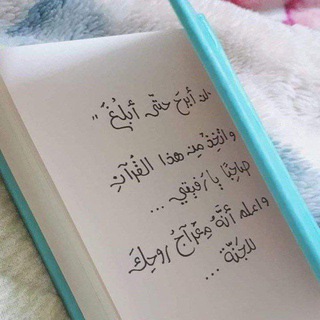 لا أبرَحَ حتَّى أبلُغَ "
واتَّخِذ مِن هذا القُرآنِ
صَاحِبًا يا رفيقي ...
واعلم أنَّهُ مِعْرَاجُ روحِكَ
للجَنَّة ...